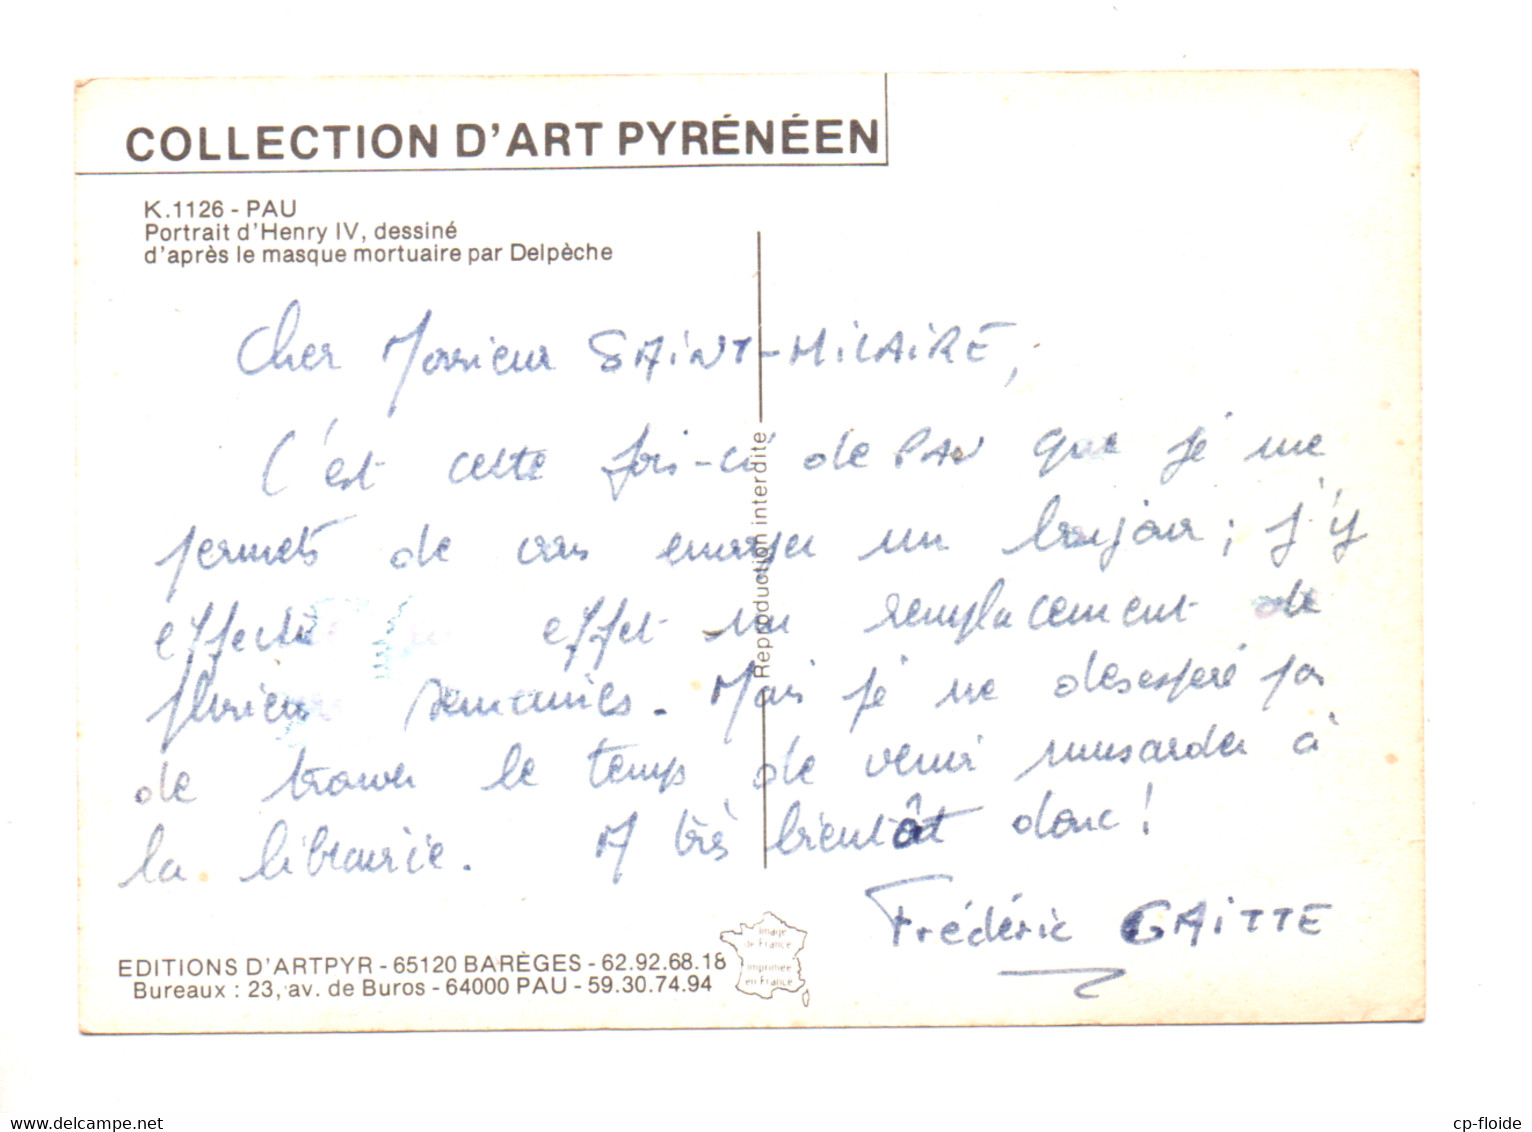 COLLECTION D'ART PYRÉNÉEN
K.1126 - PAU
Portrait d'Henry IV, dessiné
d'après le masque mortuaire par Delpèche
Cher Monsieur SAINT-HILAIRE,
C'est cette fois-ci de PAU que je me
permets de vous envoyer un bonjour ; j'y
effectue en effet un remplacement de
plusieurs semaines. Mais je ne desespère pas
de trouver le temps de venir musarder à
la librairie. A très bientôt donc !
Frédéric GAITTE
Reproduction interdite
EDITIONS D'ARTPYR - 65120 BARÈGES - 62.92.68.18
Bureaux : 23, av. de Buros - 64000 PAU - 59.30.74.94
Image
de France
Imprimée
en France
www.delcampe.net
cp-floide